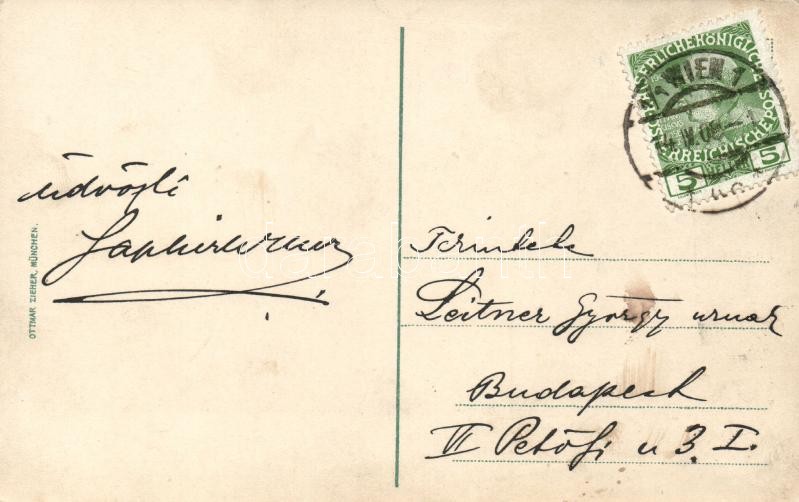 KAISERLICHEKÖNIGLICHE
ÖSTERREICHISCHE POST
5 5
WIEN 1
Üdvözli
OTTMAR ZIEHER, MÜNCHEN.
Leitner György urnak
Budapest
VI Petőfi u 3. I.